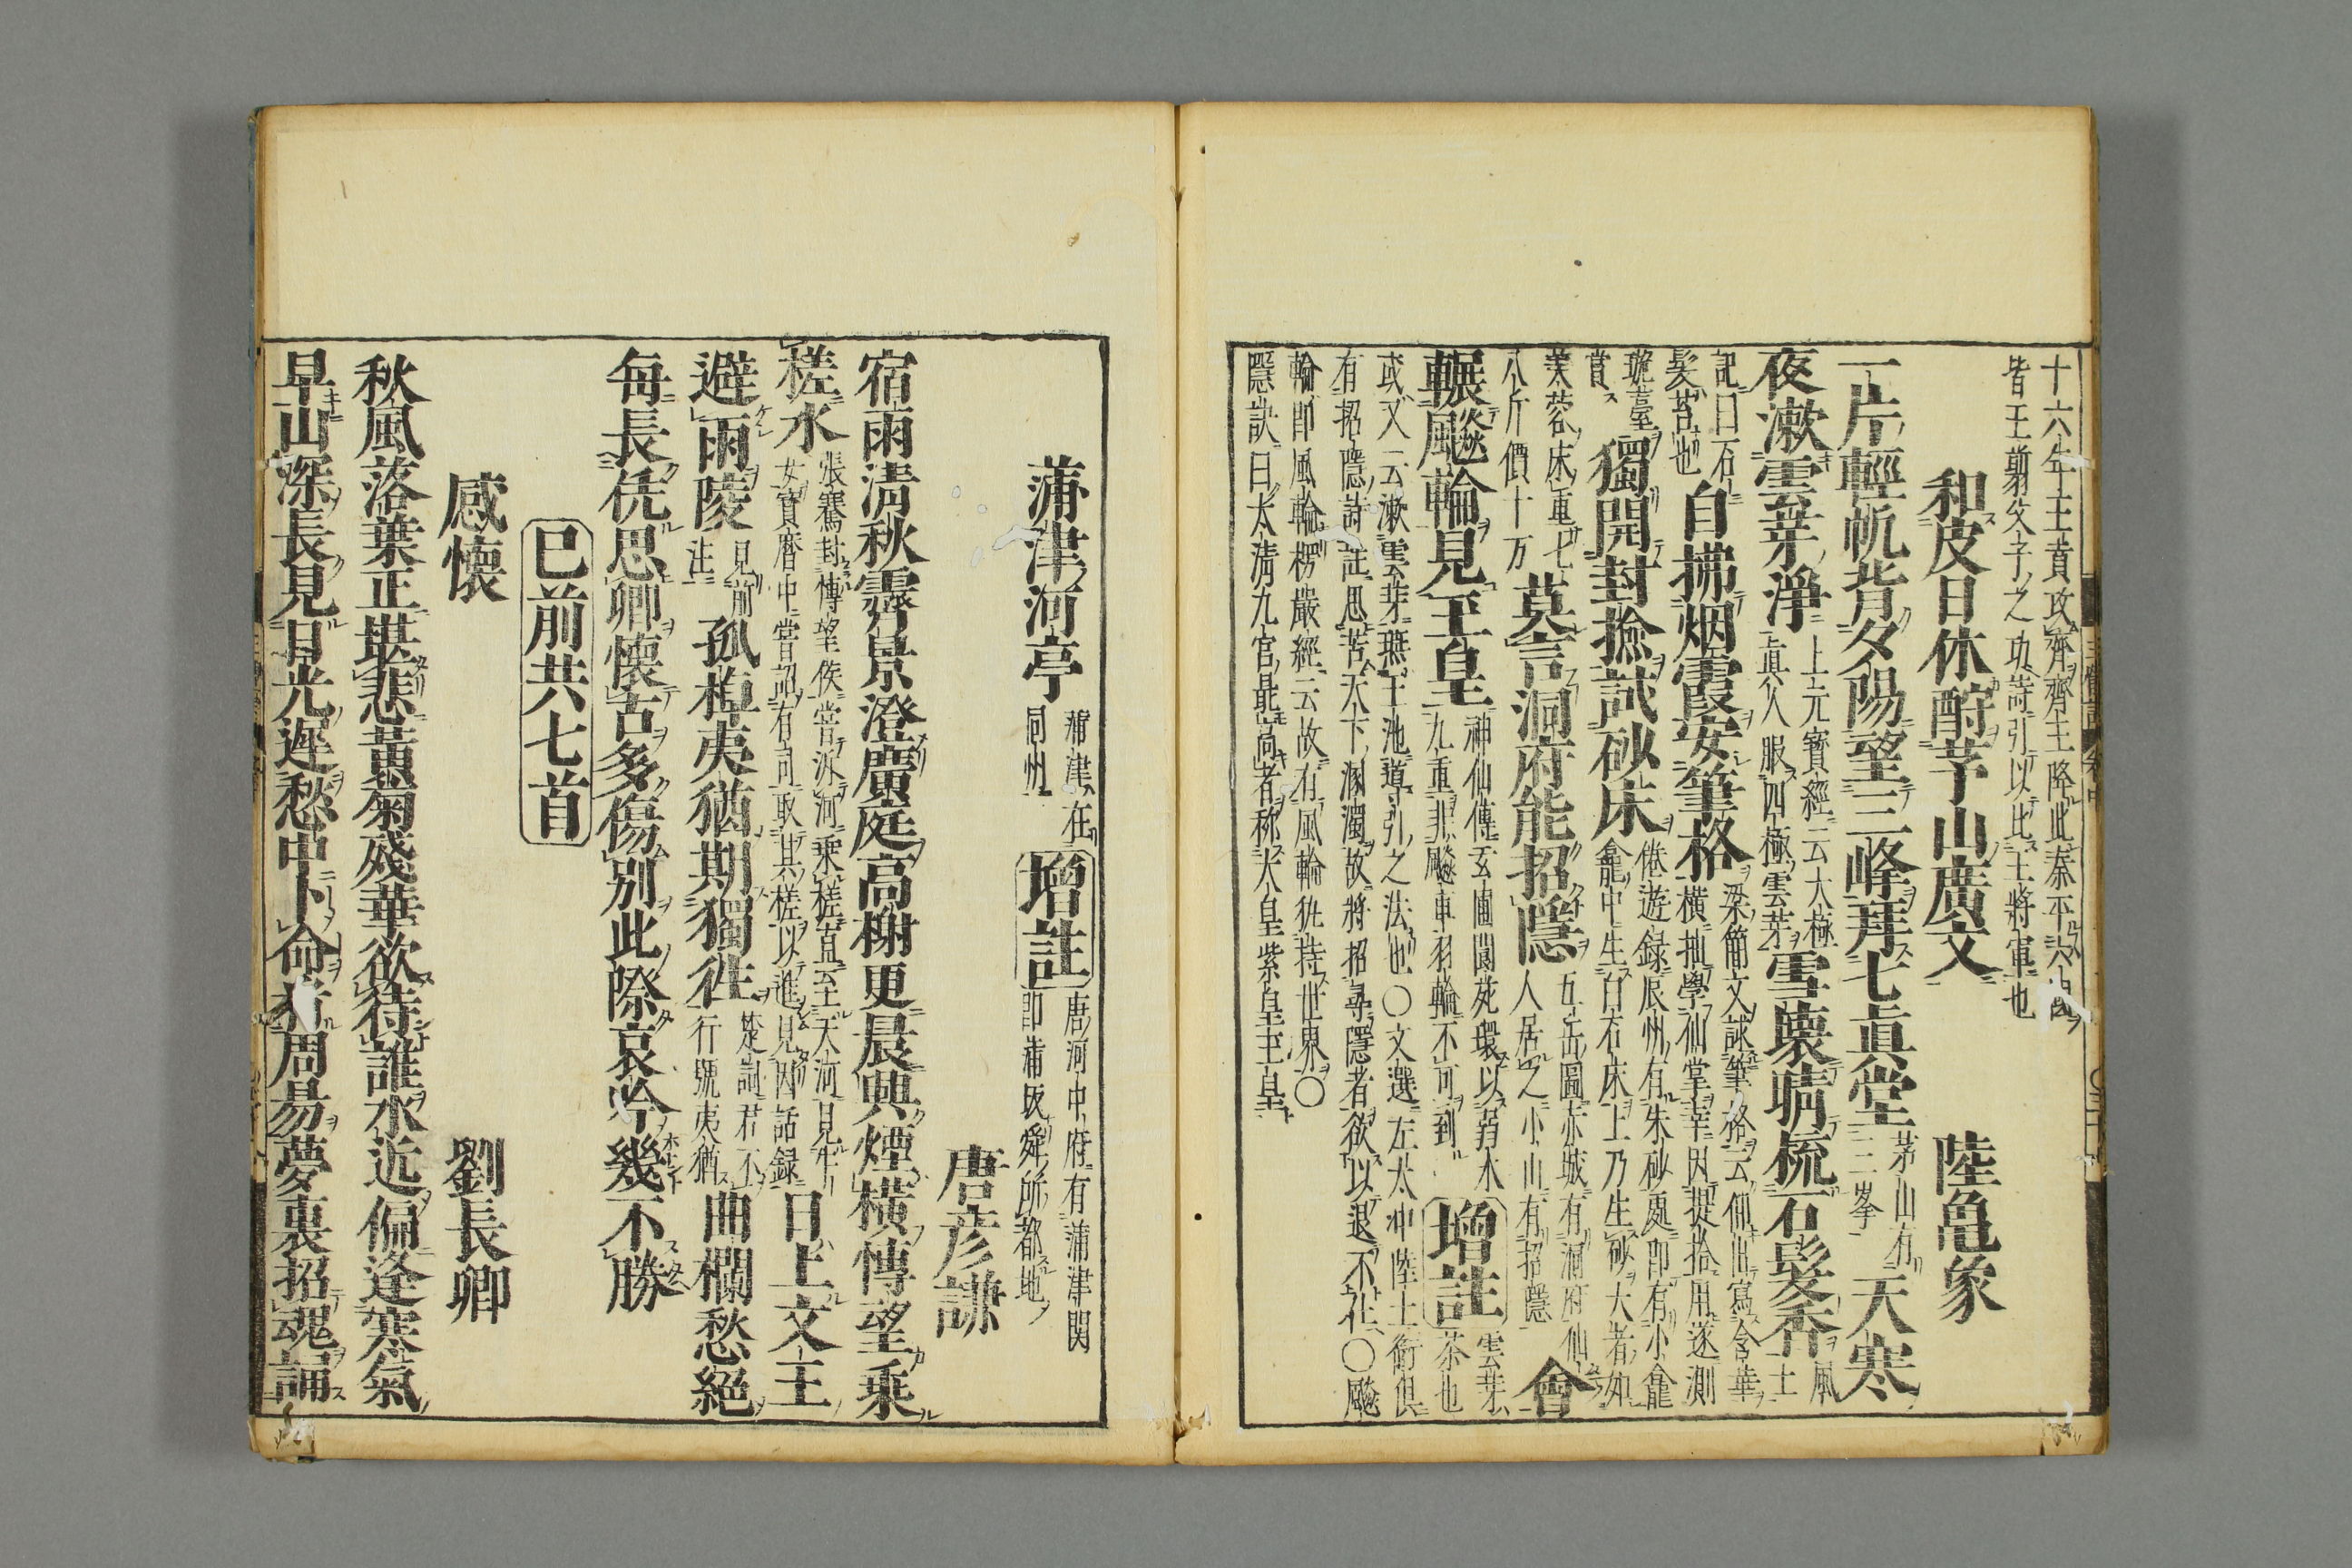 十六年王賁攻齊齊王降此秦平六國
皆王翦父子之功詩引以此王將軍也
和皮日休酧茅山廣文 陸龜蒙
一片輕帆背夕陽望三峰拜七眞堂 茅山有三峯 天寒
夜漱雲芽淨 上元寶經云太極眞人服四極雲芽 雪壞晴梳石髮香 風土
記曰石髮苔也 自拂烟霞安筆格 梁簡文詠筆格云仰出寫含華橫抽學仙掌幸因提拾用遂測
琁臺賞 獨開封撿試砂床 倦遊録辰州有朱砂處即有小龕龕中生白石床上乃生砂大者如
芙蓉床重七八斤價十万 莫言洞府能招隱 五岳圖赤城有洞府仙人居之小山有招隱 會
輾飈輪見玉皇 神仙傳玄圃閬苑環以弱水九重非飈車羽輪不可到 增註 雲芽茶也
或又云漱雲芽嚥玉池導引之法也〇文選左太冲陸士衡俱
有招隱詩註思苦天下溷濁故將招尋隱者欲以退不仕〇飈
輪即風輪楞嚴經云故有風輪執持世界〇
隱訣曰太淸九宮最高者称大皇紫皇玉皇
蒲津河亭 蒲津在同州 增註 唐河中府有蒲津関即蒲坂舜所都地
唐彦謙
宿雨淸秋霽景澄廣庭高榭更晨興煙橫慱望乘
槎水 張騫封慱望侯甞泝河乘槎直至天河見牛女寶暦中甞詔有司取其槎以進見因話録 日上文王
避雨陵 見前注 孤棹夷猶期獨徃 楚詞君不行兮夷猶 曲欄愁絕
每長凭思卿懷古多傷別此際哀吟幾不勝
已前共七首
感懷 劉長卿
秋風落葉正堪悲黃菊殘華欲待誰水近偏逢寒氣
早山深長見日光遲愁中卜命看周昜夢裏招魂誦